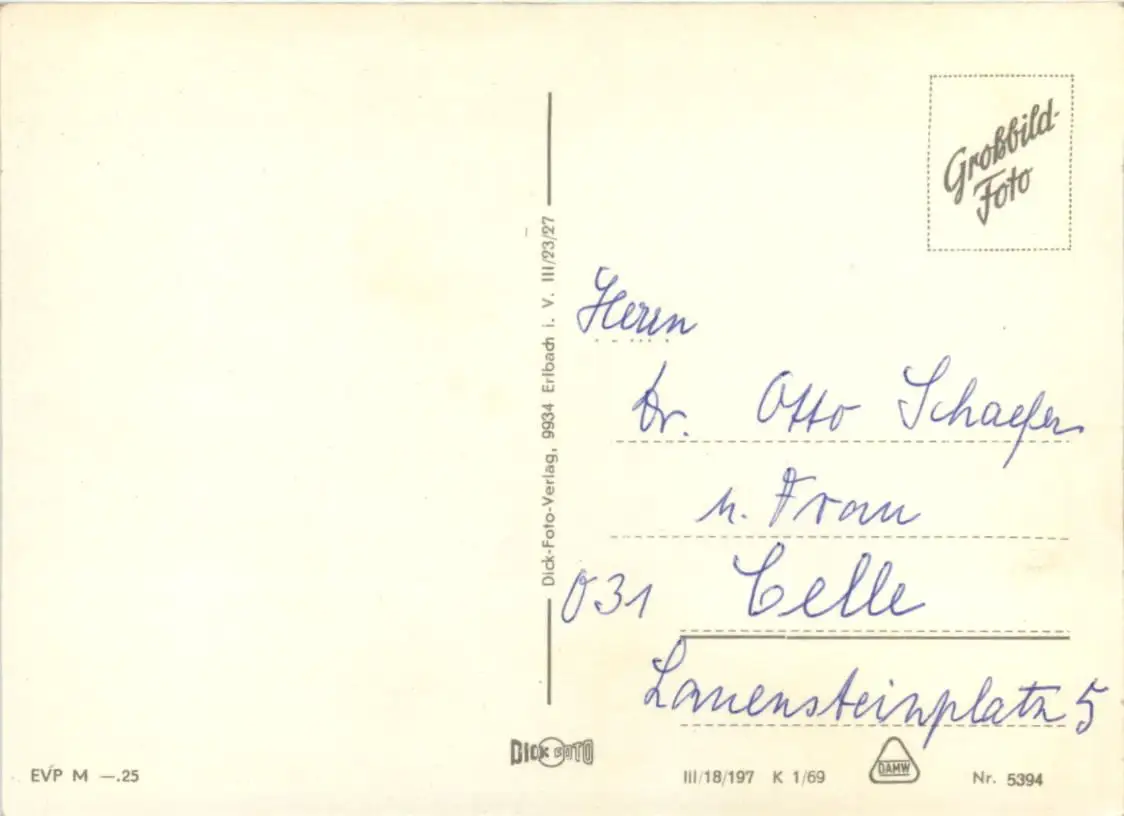 Großbild-
Foto
Dick-Foto-Verlag, 9934 Erlbach i. V. III/23/27
Herrn
Dr. Otto Schaefer
u. Frau
031 Celle
Lauensteinplatz 5
EVP M —.25
DICK FOTO
III/18/197 K 1/69
DAMW
Nr. 5394